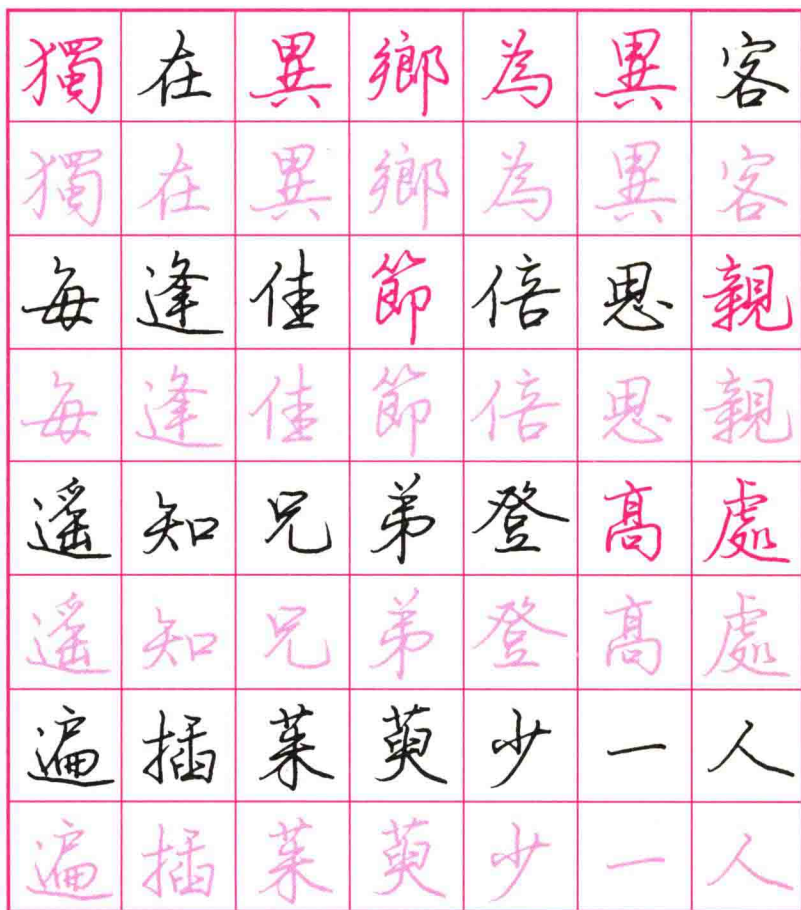 獨在異鄉為異客
獨在異鄉為異客
每逢佳節倍思親
每逢佳節倍思親
遥知兄弟登高處
遥知兄弟登高處
遍插茱萸少一人
遍插茱萸少一人